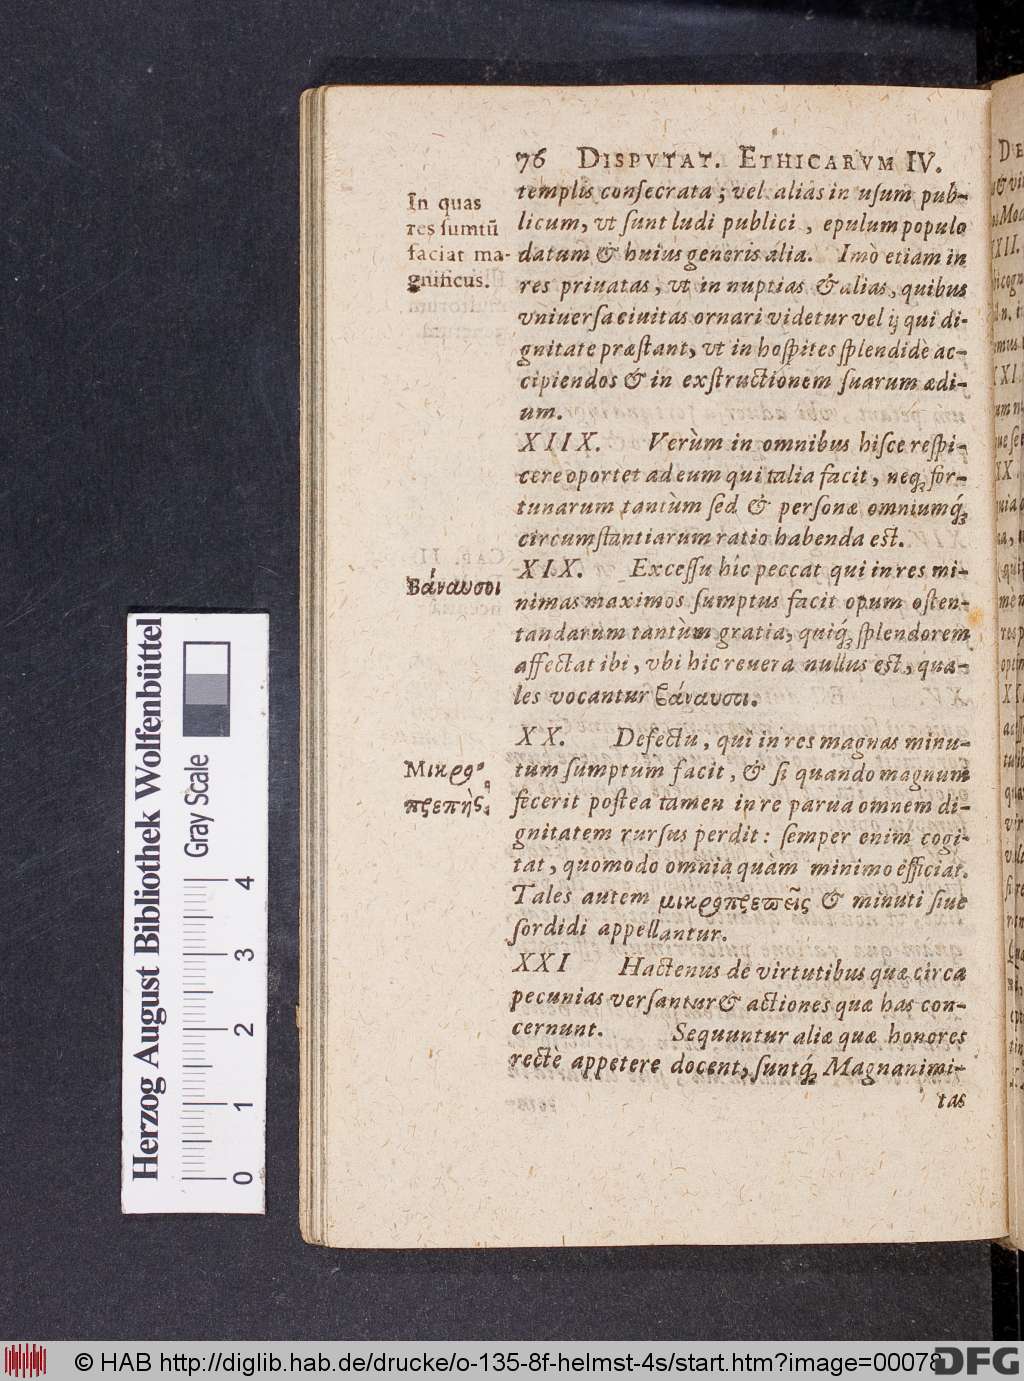 76 DISPVTAT. ETHICARVM IV.
templis conſecrata; vel alias in uſum pub-
licum, vt ſunt ludi publici, epulum populo
datum & huius generis alia. Imò etiam in
res priuatas, vt in nuptias & alias, quibus
vniuerſa ciuitas ornari videtur vel ij qui di-
gnitate præſtant, vt in hoſpites ſplendidè ac-
cipiendos & in exſtructionem ſuarum ædi-
um.
In quas
res ſumtū
faciat ma-
gnificus.
XIIX. Verùm in omnibus hiſce reſpi-
cere oportet ad eum qui talia facit, neq; for-
tunarum tantùm ſed & perſonæ omniumq́;
circumſtantiarum ratio habenda est.
XIX. Exceſſu hîc peccat qui in res mi-
nimas maximos ſumptus facit opum oſten-
tandarum tantùm gratia, quiq́; ſplendorem
affectat ibi, vbi hic reuera nullus est, qua-
les vocantur βάναυσοι.
Βάναυσοι
XX. Defectu, qui in res magnas minu-
tum ſumptum facit, & ſi quando magnum
fecerit poſtea tamen in re parua omnem di-
gnitatem rurſus perdit: ſemper enim cogi-
tat, quomodo omnia quàm minimo efficiat.
Tales autem μικροπρεπεῖς & minuti ſiue
ſordidi appellantur.
Μικρο-
πρεπὴς.
XXI Hactenus de virtutibus quæ circa
pecunias verſantur & actiones quæ has con-
cernunt. Sequuntur aliæ quæ honores
rectè appetere docent, ſuntq́; Magnanimi-
tas
Herzog August Bibliothek Wolfenbüttel
Gray Scale
0 1 2 3 4
© HAB http://diglib.hab.de/drucke/o-135-8f-helmst-4s/start.htm?image=00078
DFG